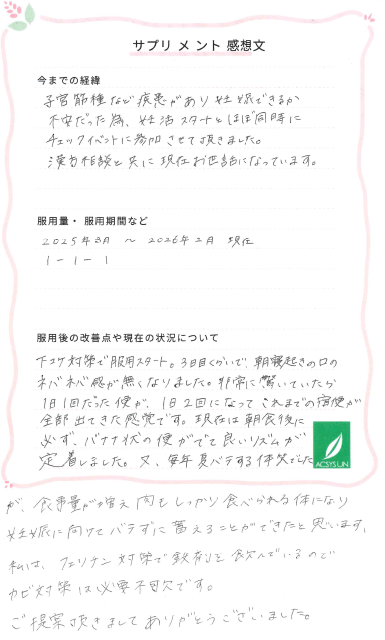 サプリメント感想文
今までの経緯
子宮筋腫など疾患があり妊娠できるか
不安だった為、妊活スタートとほぼ同時に
チェックイベントに参加させて頂きました。
漢方相談と共に現在お世話になっています。
服用量・服用期間など
2025年3月 〜 2026年2月 現在
1-1-1
服用後の改善点や現在の状況について
下コケ対策で服用スタート。3日目くらいで、朝寝起きの口の
ネバネバ感が無くなりました。非常に驚いていたら
1日1回だった便が、1日2回になって これまでの宿便が
全部出てきた感覚です。現在は朝食後に
必ず、バナナ状の便がでて良いリズムが
定着しました。又、毎年夏バテする体質でした
ACSYSUN
が、食事量が増え肉もしっかり食べられる体になり
妊娠に向けてバテずに蓄えることができたと思います。
私は、フェリチン対策で鉄剤を飲んでいるので
カビ対策は必要不可欠です。
ご提案頂きましてありがとうございました。